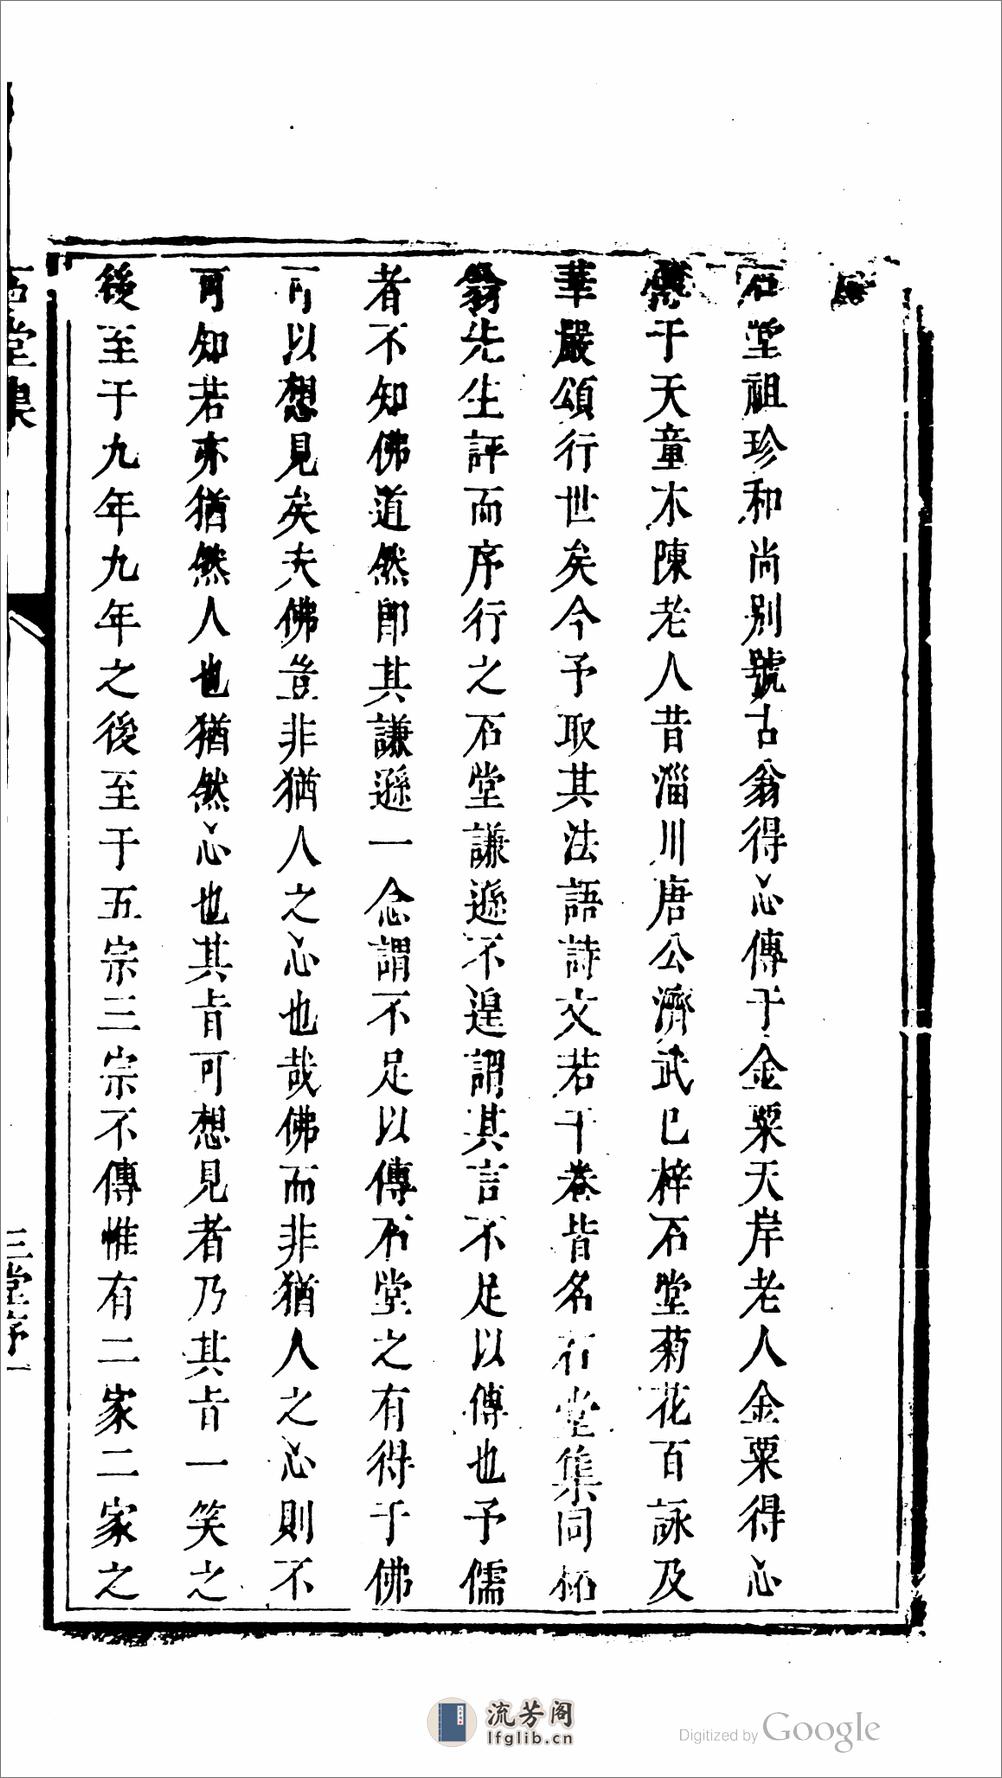 序
石堂祖珍和尚别號古翁得心傳于金粟天岸老人金粟得心
于天童木陳老人昔淄川唐公濟武巳梓石堂菊花百詠及
華嚴頌行世矣今予取其法語詩文若干卷皆名石堂集同拓
翁先生評而序行之石堂謙遜不遑謂其言不足以傳也予儒
者不知佛道然即其謙遜一念謂不足以傳石堂之有得于佛
可以想見矣夫佛豈非猶人之心也哉佛而非猶人之心則不
可知若亦猶然人也猶然心也其旨可想見者乃其旨一笑之
後至于九年九年之後至于五宗三宗不傳惟有二家二家之
石堂集
堂序
一
流芳阁
lfglib.cn
Digitized by Google